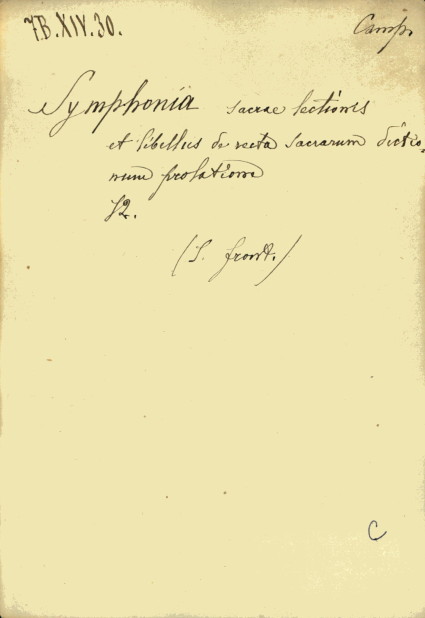 7B.XIV.30.
Camp.
Symphonia sacrae lectionis
et libellus de recta sacrarum dictio,
num prolatione
12.
(S. front.)
C